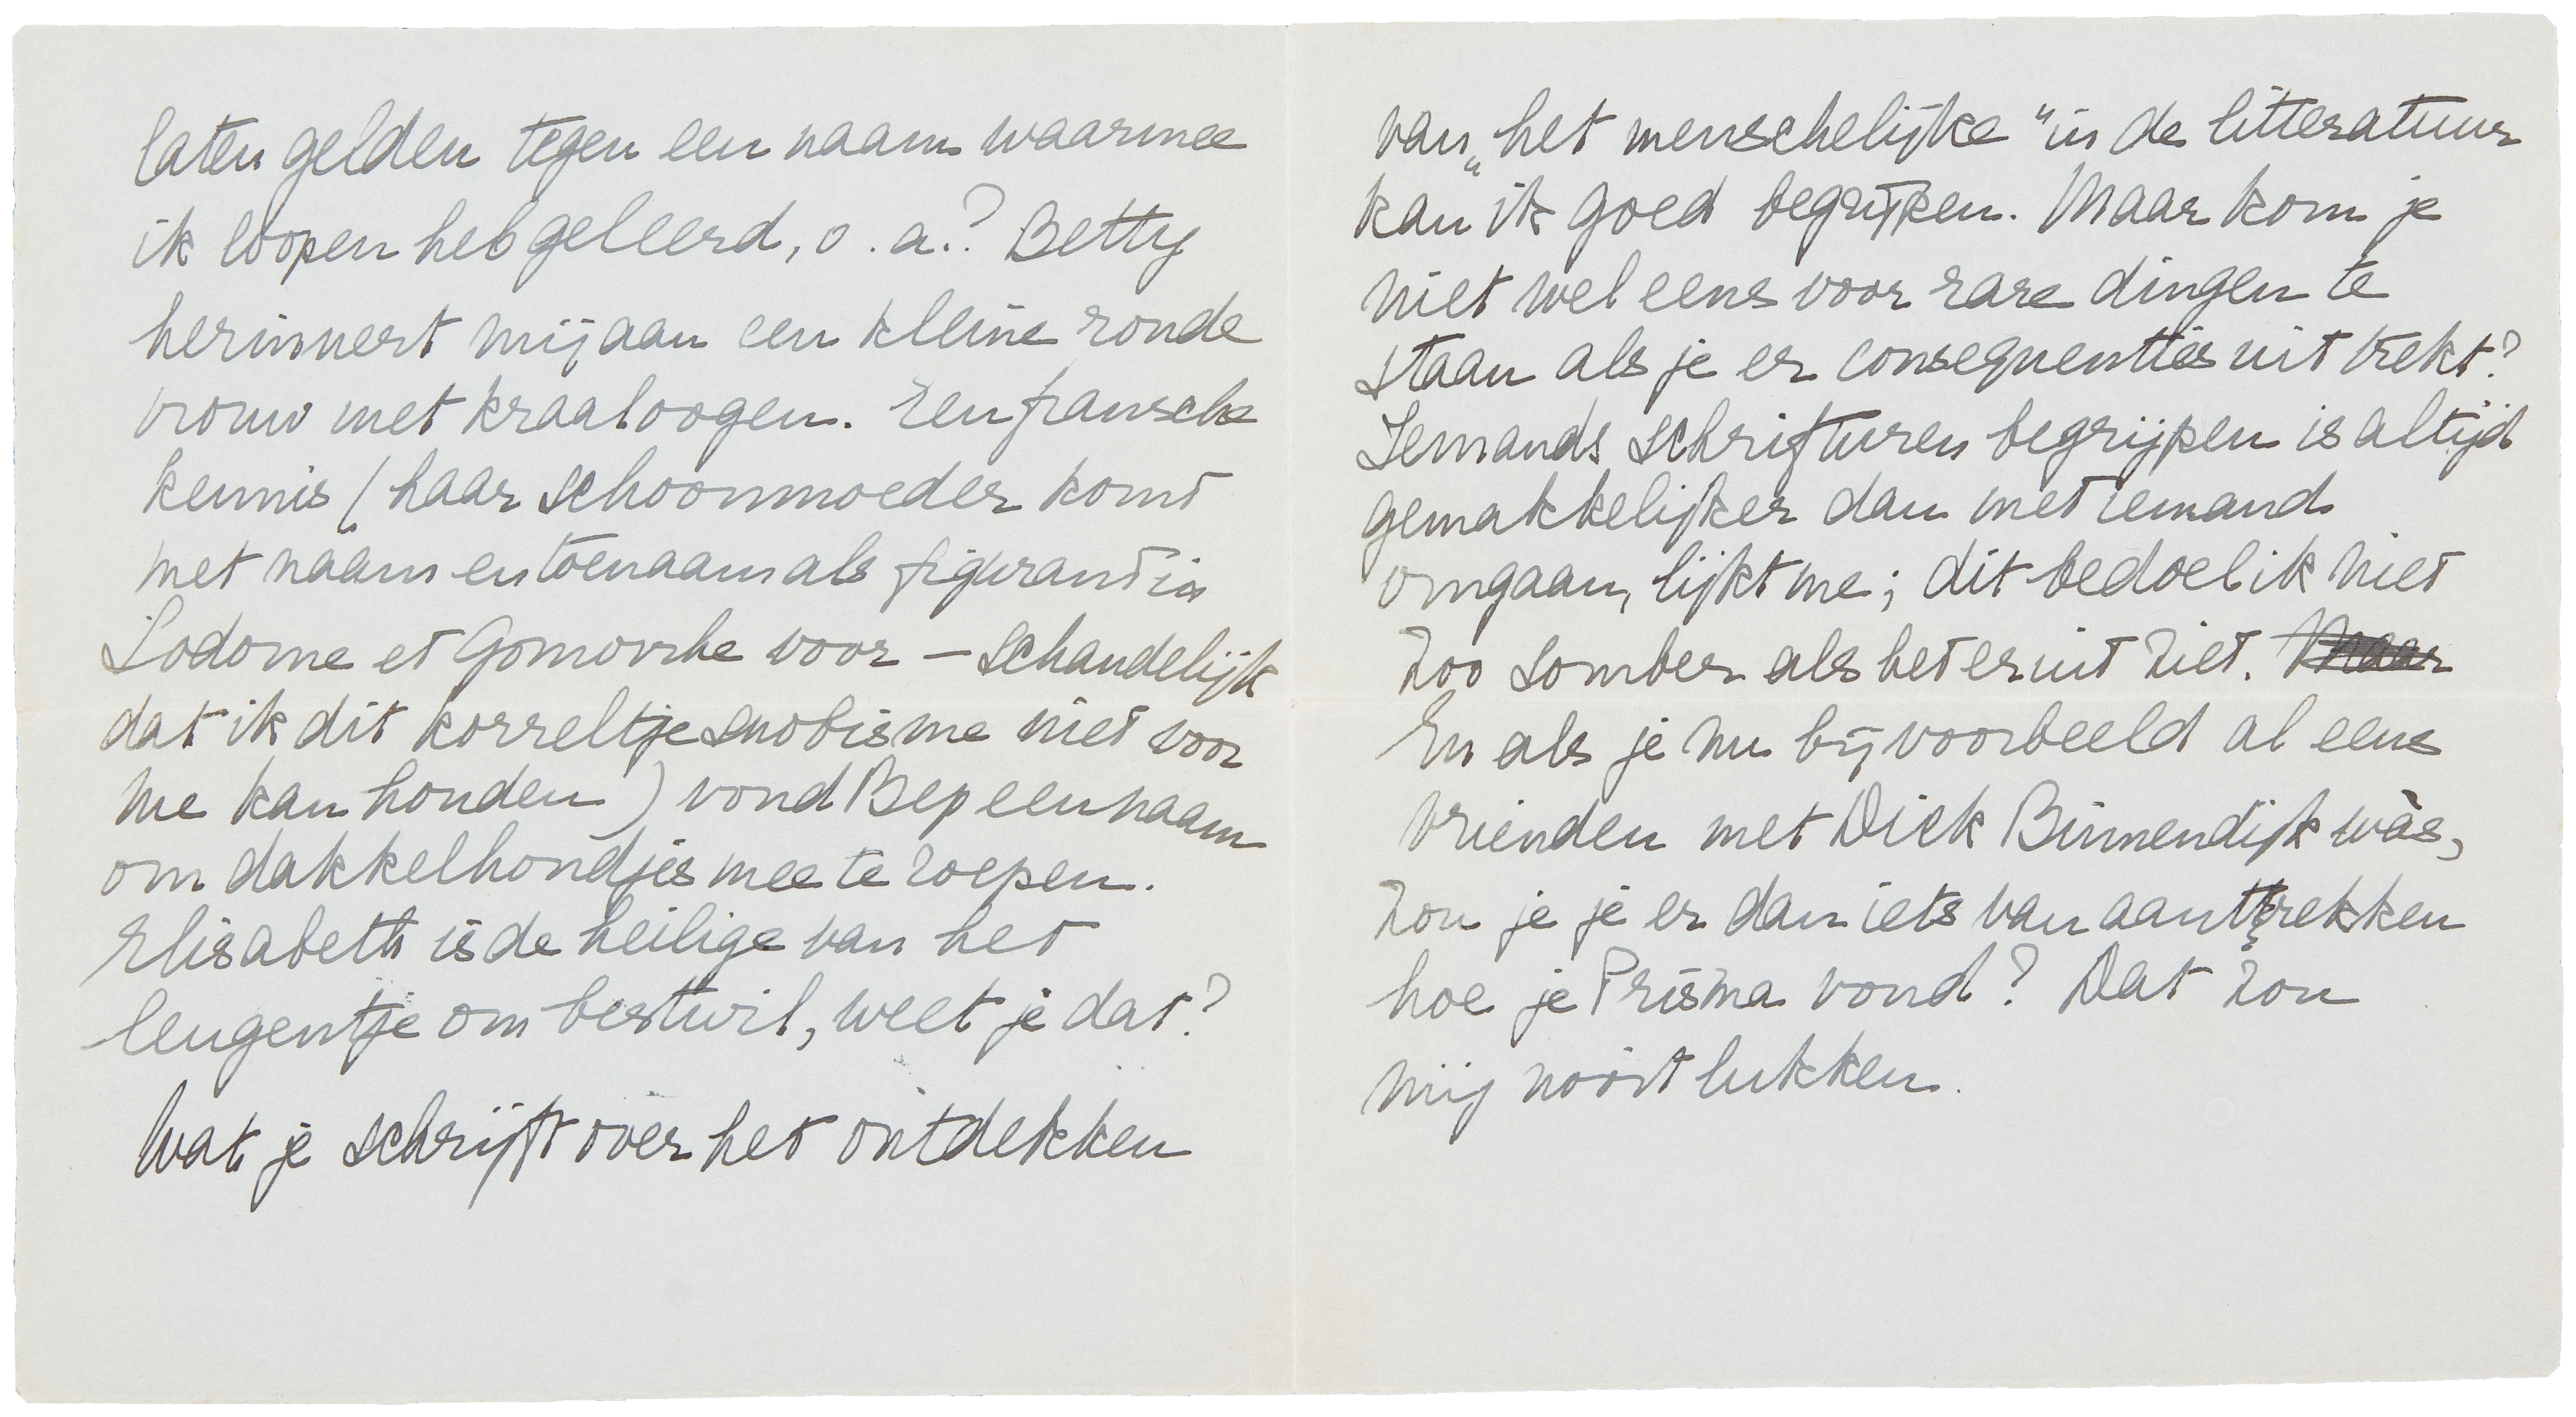 laten gelden tegen een naam waarmee
ik loopen heb geleerd, o.a.? Betty
herinnert mij aan een kleine ronde
vrouw met kraaloogen. Een fransche
kennis (haar schoonmoeder komt
met naam en toenaam als figurant in
Sodome et Gomorrhe voor – schandelijk
dat ik dit korreltje snobisme niet voor
me kan houden) vond Bep een naam
om dakkelhondjes mee te roepen.
Elisabeth is de heilige van het
leugentje om bestwil, weet je dat?
Wat je schrijft over het ontdekken
van „het menschelijke“ in de litteratuur
kan ik goed begrijpen. Maar kom je
niet wel eens voor rare dingen te
staan als je er consequenties uit trekt?
Iemands schrifturen begrijpen is altijd
gemakkelijker dan met iemand
omgaan, lijkt me; dit bedoel ik niet
zoo somber als het eruit ziet. Maar
En als je nu bij voorbeeld al eens
vrienden met Dick Binnendijk wàs,
zou je je er dan iets van aantrekken
hoe je Prisma vond? Dat zou
mij nooit lukken.